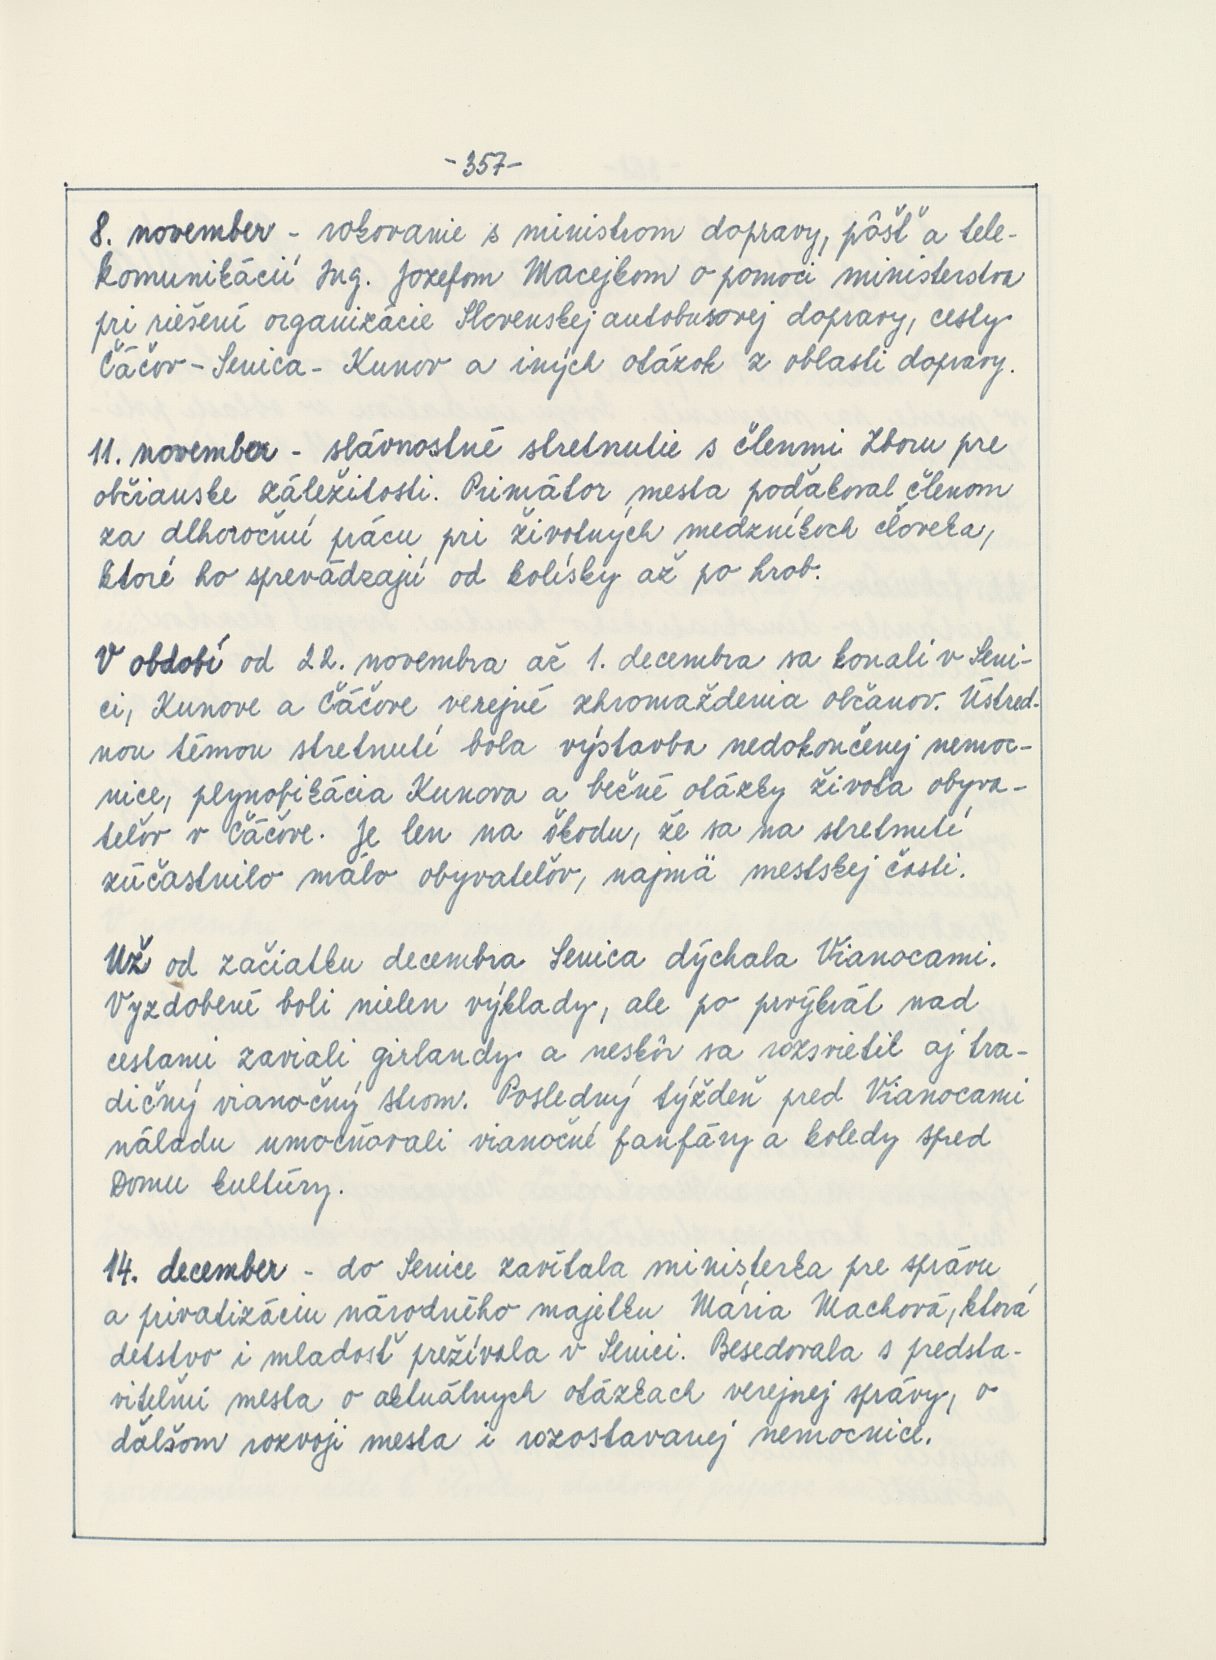 -357-
8. november - rokovanie s ministrom dopravy, pôšť a tele-
komunikácií Ing. Jozefom Macejkom o pomoci ministerstva
pri riešení organizácie Slovenskej autobusovej dopravy, cesty
Čáčov - Senica - Kunov a iných otázok z oblasti dopravy.
11. november - slávnostné stretnutie s členmi Zboru pre
občianske záležitosti. Primátor mesta poďakoval členom
za dlhoročnú prácu pri životných medzníkoch človeka,
ktoré ho sprevádzajú od kolísky až po hrob.
V období od 22. novembra až 1. decembra sa konali v Seni-
ci, Kunove a Čáčove verejné zhromaždenia občanov. Ústred-
nou témou stretnutí bola výstavba nedokončenej nemoc-
nice, plynofikácia Kunova a bečné otázky života obyva-
teľov v Čáčove. Je len na škodu, že sa na stretnutí
zúčastnilo málo obyvateľov, najmä mestskej časti.
Už od začiatku decembra Senica dýchala Vianocami.
Vyzdobené boli nielen výklady, ale po prvýkrát nad
cestami zaviali girlandy a neskôr sa rozsvietil aj tra-
dičný vianočný strom. Posledný týždeň pred Vianocami
náladu umocňovali vianočné fanfáry a koledy spred
Domu kultúry.
14. december - do Senice zavítala ministerka pre správu
a privatizáciu národného majetku Mária Machová, ktorá
detstvo i mladosť prežívala v Senici. Besedovala s predsta-
viteľmi mesta o aktuálnych otázkach verejnej správy, o
ďalšom rozvoji mesta i rozostavanej nemocnice.